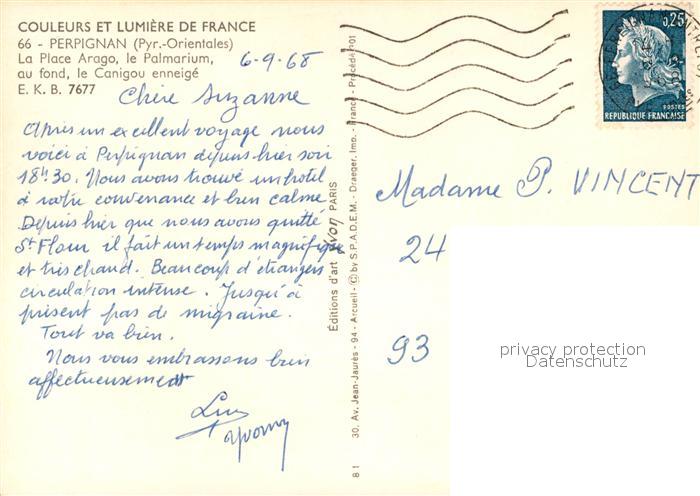 COULEURS ET LUMIÈRE DE FRANCE
66 - PERPIGNAN (Pyr.-Orientales)
La Place Arago, le Palmarium,
au fond, le Canigou enneigé
E. K. B. 7677
6-9-68
Chère Suzanne
Après un excellent voyage nous
voici à Perpignan depuis hier soir
18h30. Nous avons trouvé un hotel
à notre convenance et bien calme
Depuis hier que nous avons quitté
St Flour il fait un temps magnifique
et très chaud. Beaucoup d'étrangers
circulation intense. Jusqu'à
présent pas de migraine.
Tout va bien.
Nous vous embrassons bien
affectueusement
Yvonne
Éditions d'art yvon PARIS
30, Av. Jean-Jaurès - 94 - Arcueil - © by S.P.A.D.E.M. - Draeger, Imp. - France - Procédé 301
8 1
0,25
POSTES
REPUBLIQUE FRANÇAISE
Madame P. VINCENT
24
93
privacy protection
Datenschutz